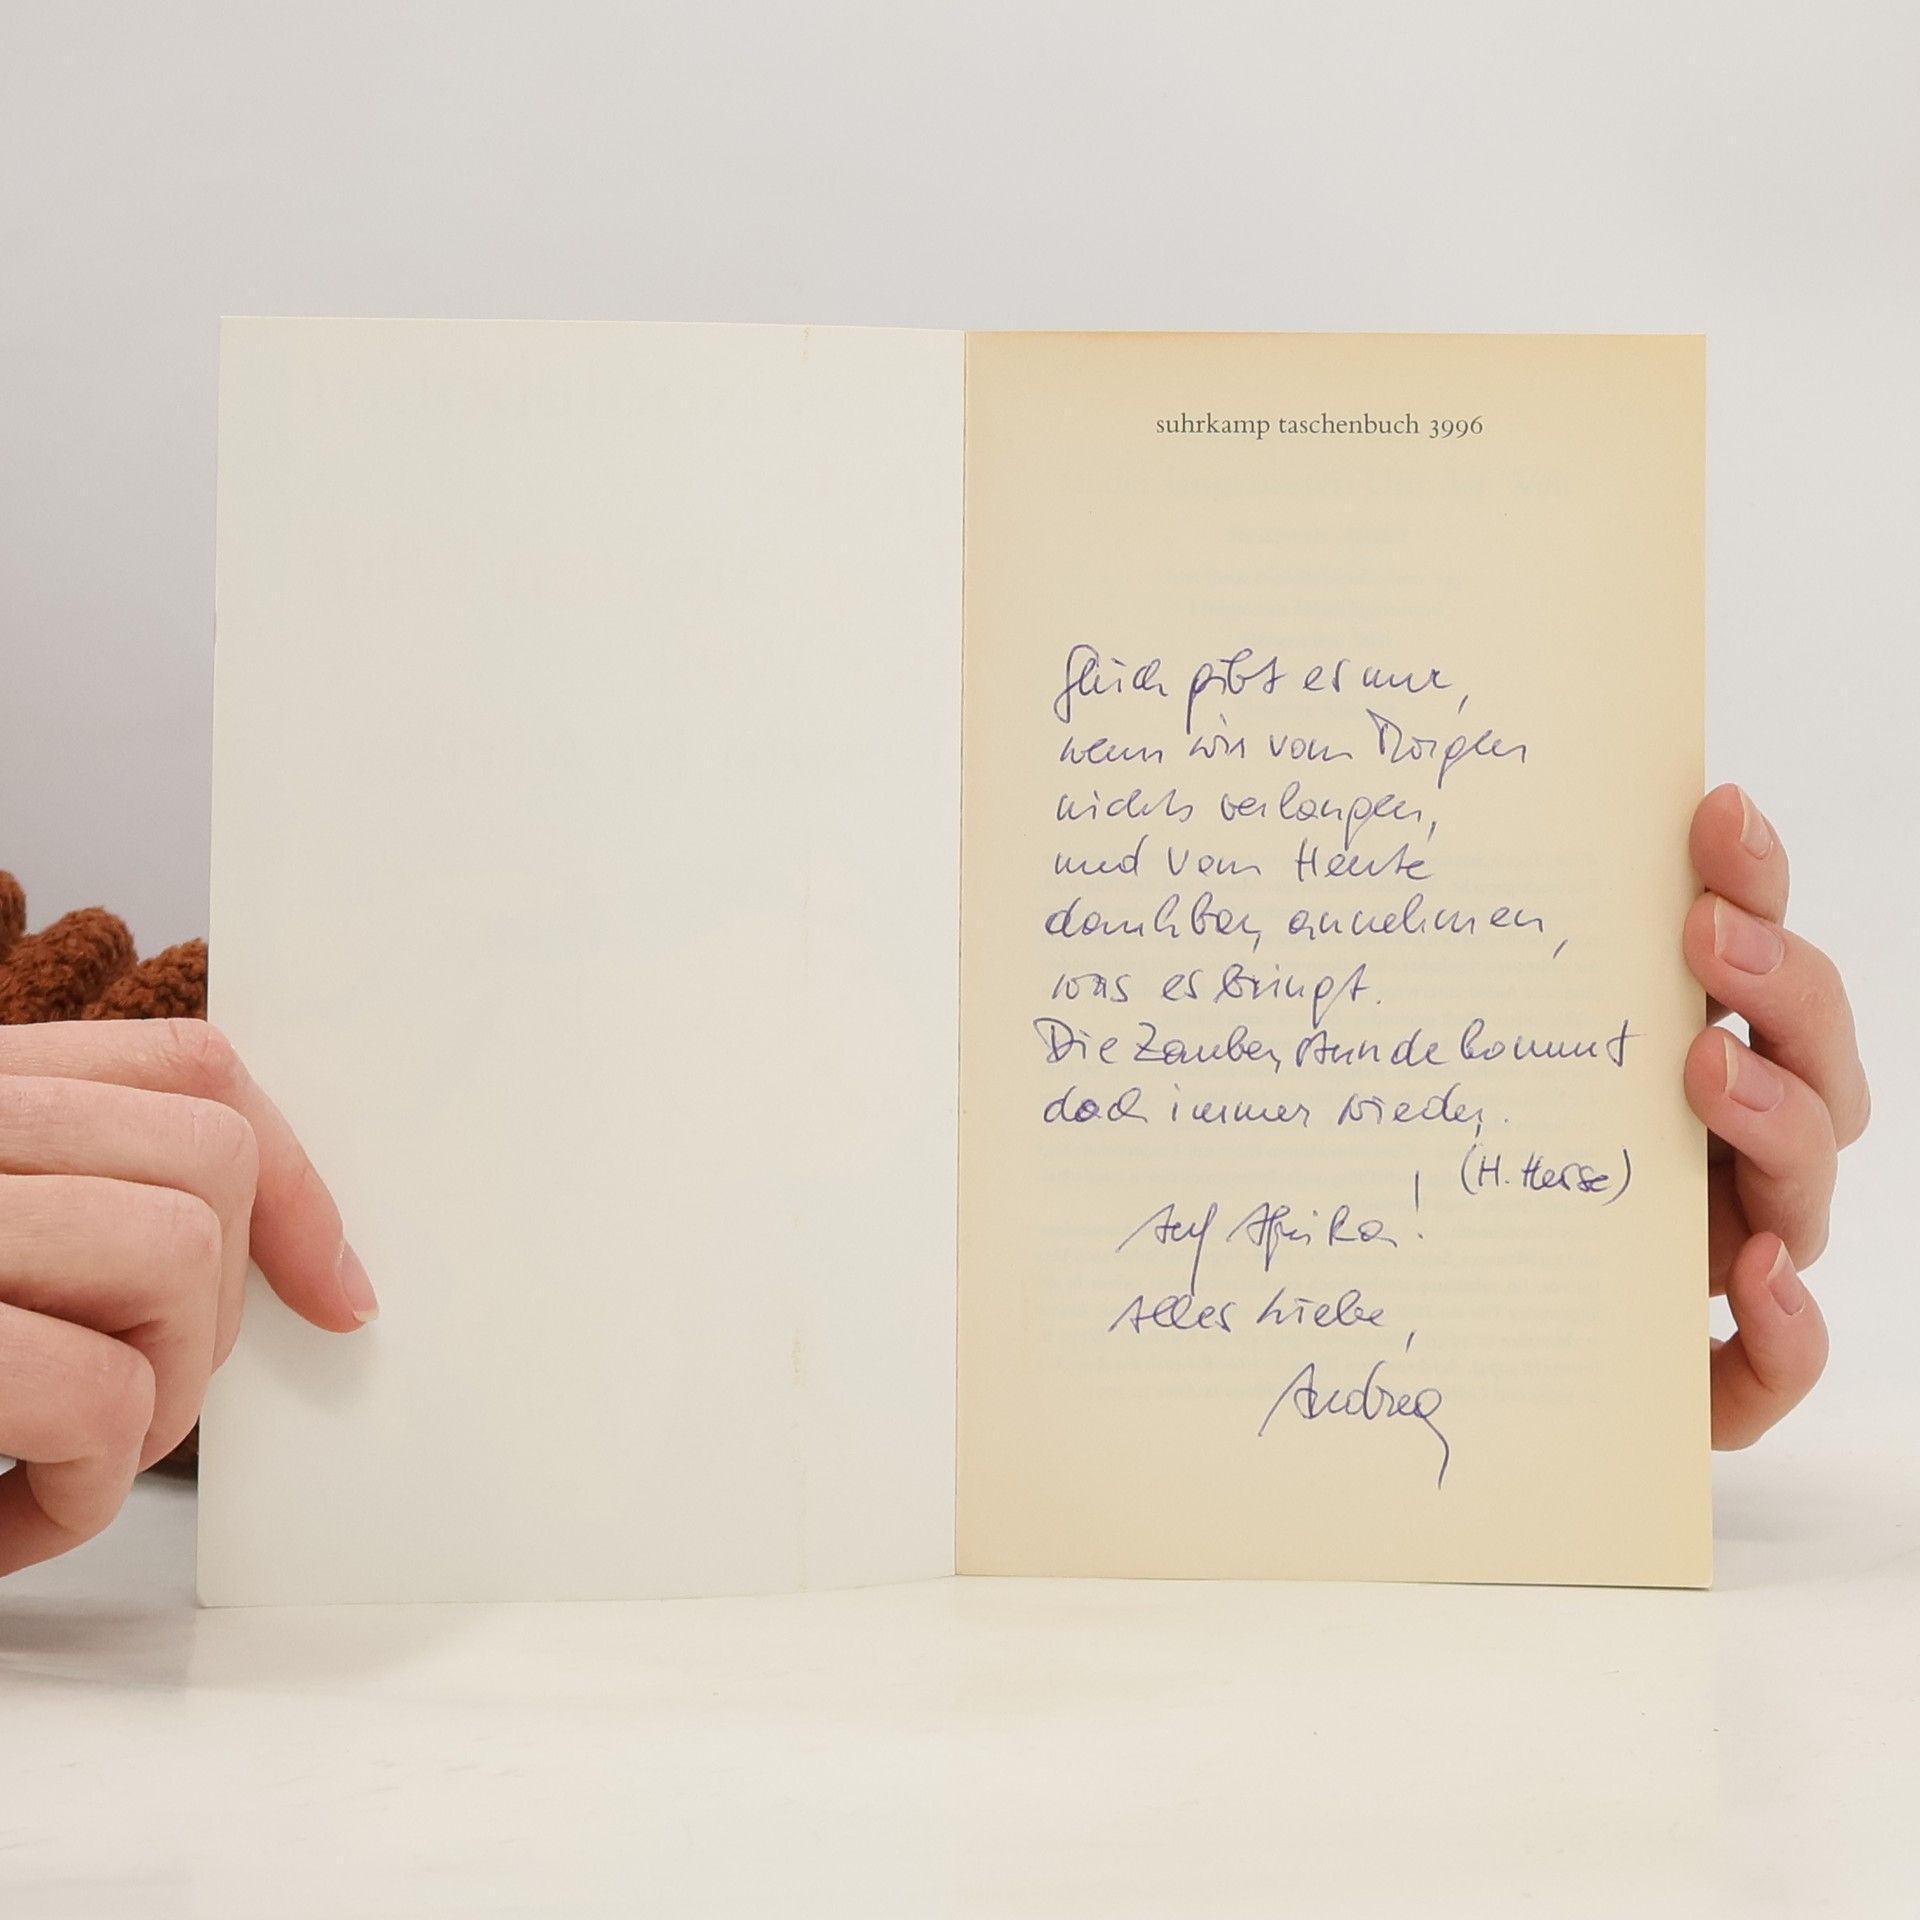 suhrkamp taschenbuch 3996
Glück gibt es nur,
wenn wir vom Morgen
nichts verlangen,
und vom Heute
dankbar annehmen,
was es bringt.
Die Zauberstunde kommt
doch immer wieder.
(H. Hesse)
Auf Afrika!
Alles Liebe,
Andrea